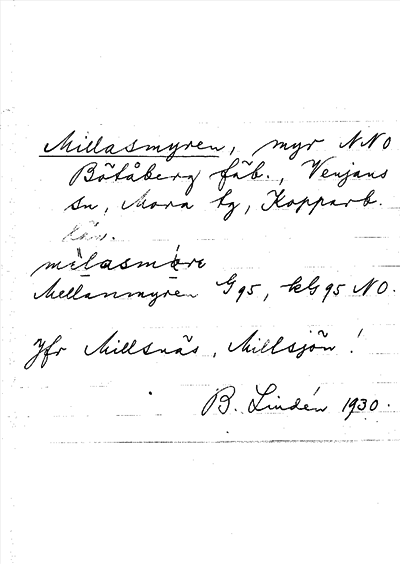 Millasmyren, myr NNO
Bötåberg fäb., Venjans
sn, Mora tg, Kopparb.
län.
Mellanmyren G95, kG95 NO.
Jfr Millsnäs, Millsjön!
B. Lindén 1930.